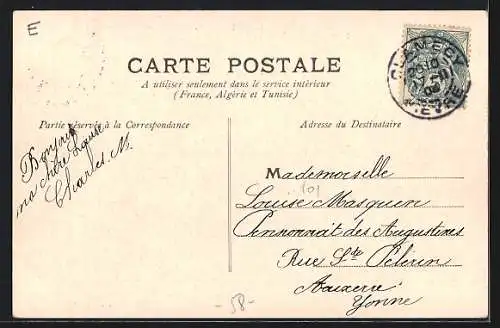 E
CARTE POSTALE
A utiliser seulement dans le service intérieur
(France, Algérie et Tunisie)
Partie réservée à la Correspondance
Adresse du Destinataire
CLAMECY
NIEVRE
Bonjour
ma chère Louise
Charles. M.
Mademoiselle
Louise Masquin
Pensionnat des Augustines
Rue Ste Pélerin
Auxerre
Yonne
101
- 58 -